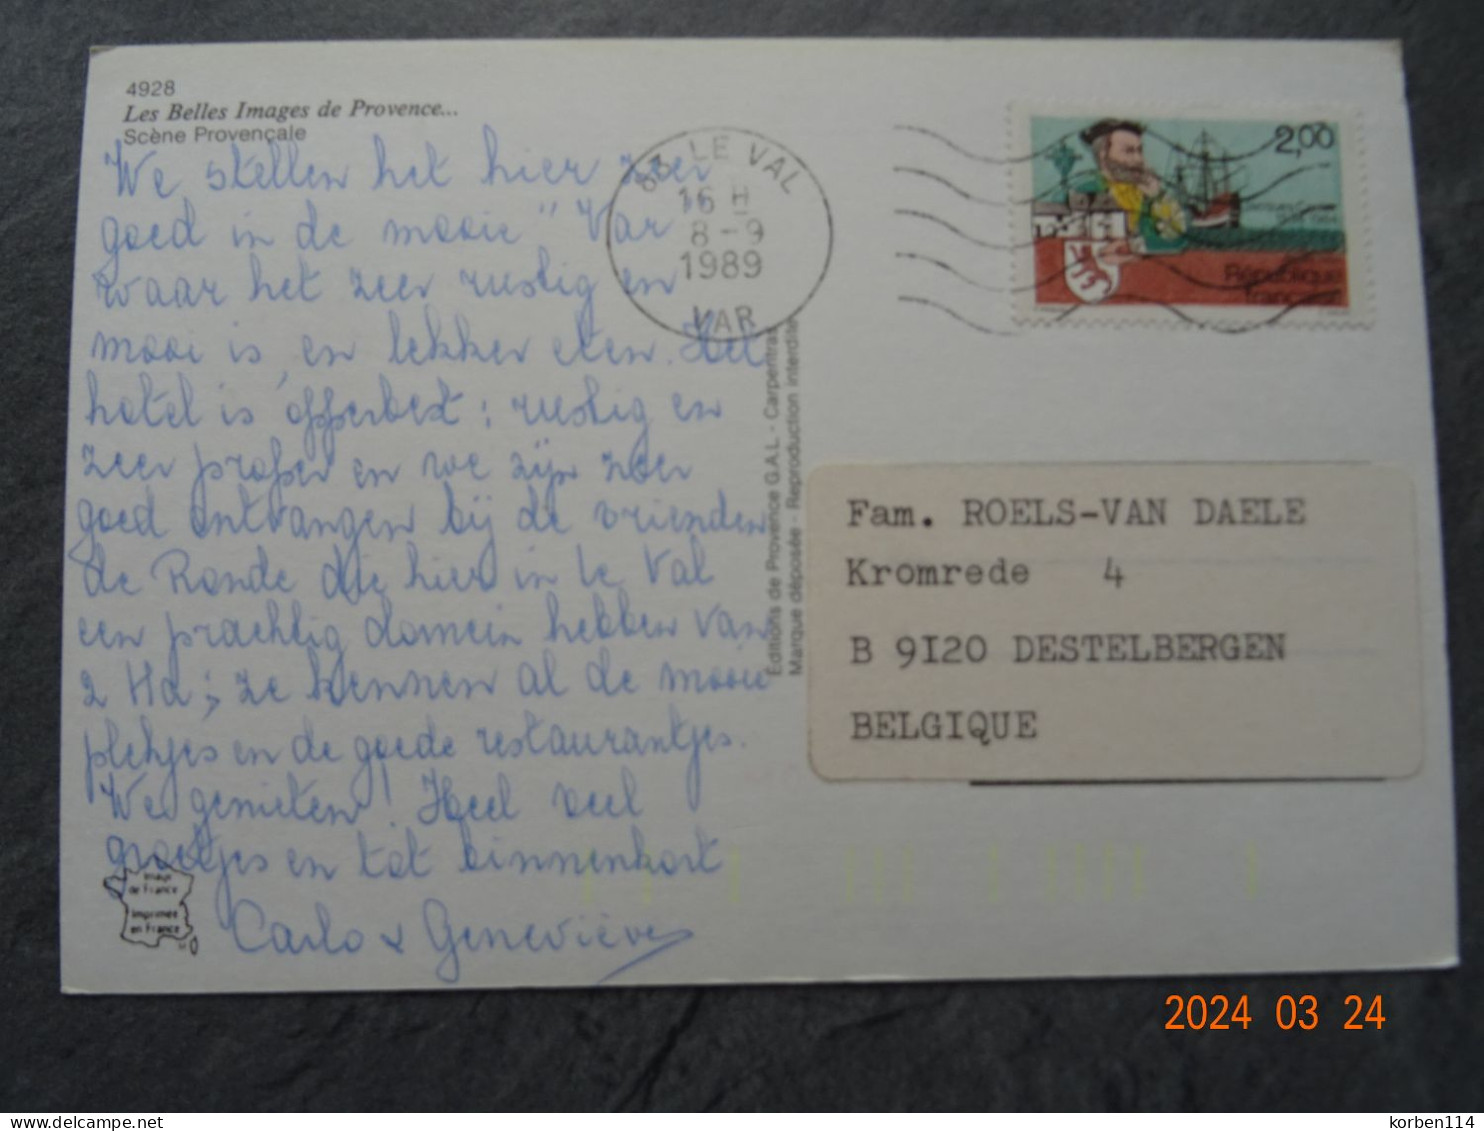 4928
Les Belles Images de Provence...
Scène Provençale
We stellen het hier zeer
goed in de mooie "Var
waar het zeer rustig en
mooi is en lekker eten. Het
hotel is opperbest: rustig en
zeer proper en we zijn zeer
goed ontvangen bij de vrienden
de Ronde die hier in Le Val
een prachtig domein hebben van
2 Ha; ze kennen al de mooie
plekjes en de goede restaurantjes.
We genieten! Heel veel
groetjes en tot binnenkort
Carlo & Geneviève
Image
de France
Imprimée
en France
Editions de Provence G.A.L. - Carpentras
Marque déposée - Reproduction interdite
83 LE VAL
16 H
8-9
1989
VAR
2,00
République
française
Fam. ROELS-VAN DAELE
Kromrede 4
B 9120 DESTELBERGEN
BELGIQUE
2024 03 24
korben114